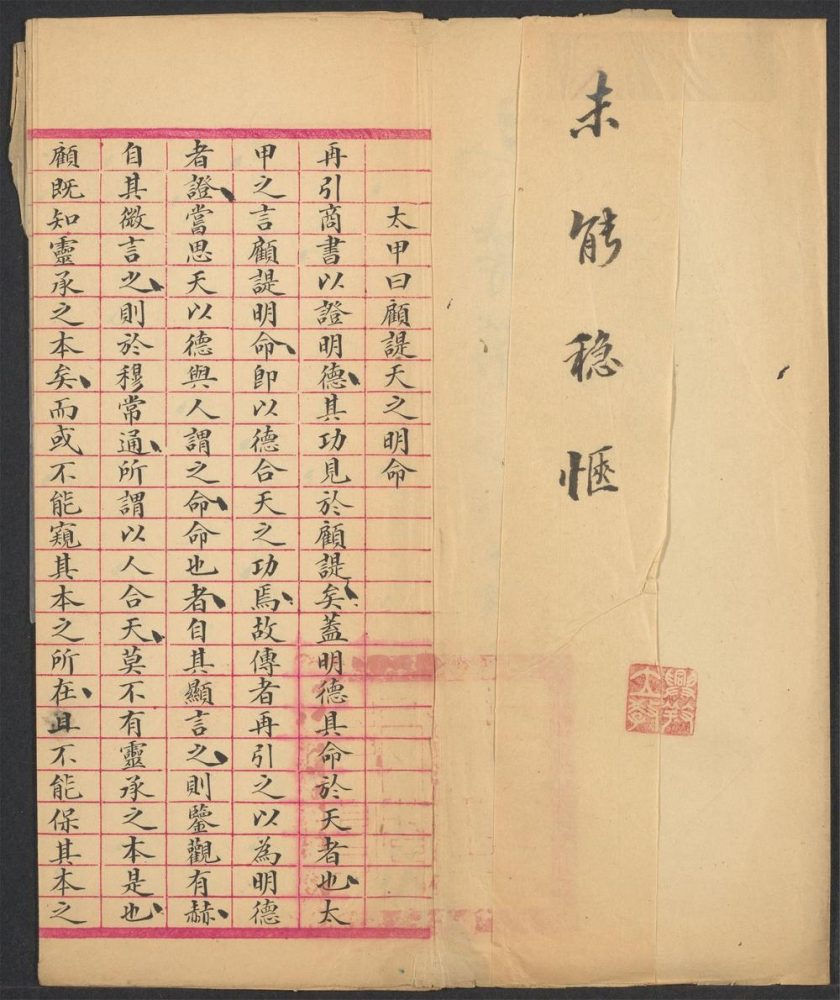 未能穩愜
太甲曰顧諟天之明命
再引商書以證明德其功見於顧諟矣蓋明德具命於天者也太
甲之言顧諟明命即以德合天之功焉故傳者再引之以為明德
者證當思天以德與人謂之命命也者自其顯言之則鑒觀有赫
自其微言之則於穆常通所謂以人合天莫不有靈承之本是也
顧既知靈承之本矣而或不能窺其本之所在且不能保其本之